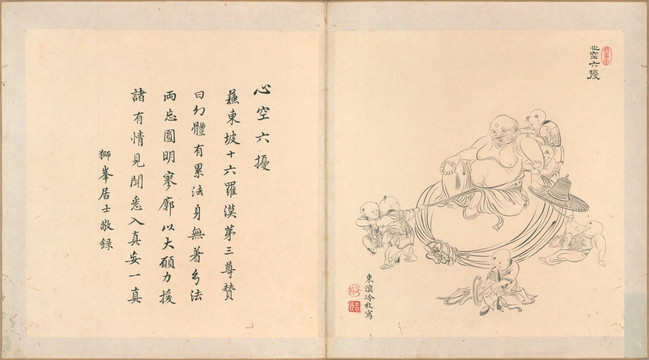 心空六擾
東溟冷枚寫
心空六擾
蘇東坡十六羅漢第三尊贊
曰幻體有累法身無著兮法
兩忘圓明寥廓以大願力援
諸有情見聞悉入真妄一真
獅峯居士敬錄